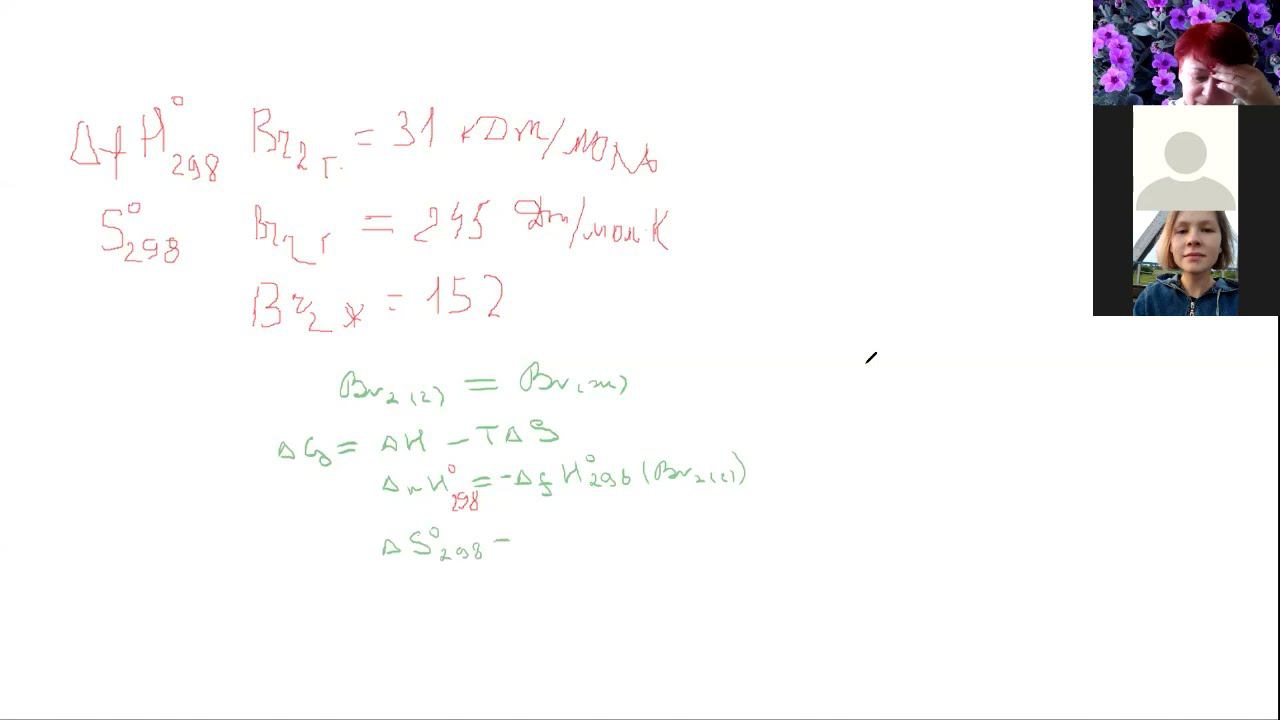 ΔfH°298 Br2 г. = 31 кДж/моль
S°298 Br2 г = 245 Дж/моль·К
Br2 ж = 152
Br2(г) = Br(ж)
ΔG = ΔH - TΔS
ΔrH°298 = -ΔfH°298 (Br2(г))
ΔS°298 =